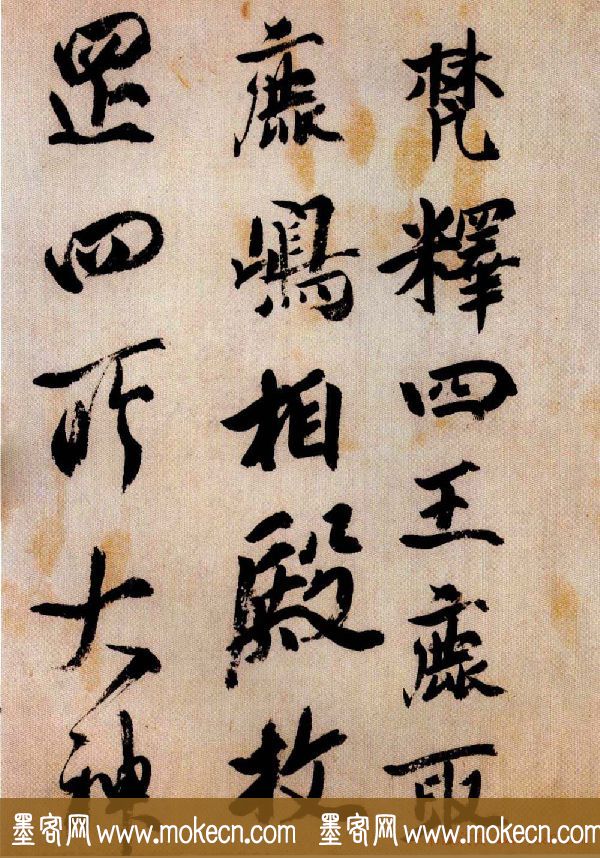 梵釋四王鹿取
鹿嶋相殿枚
罡四所大神
墨客网 www.mokecn.com 墨客网 www.mokecn.com